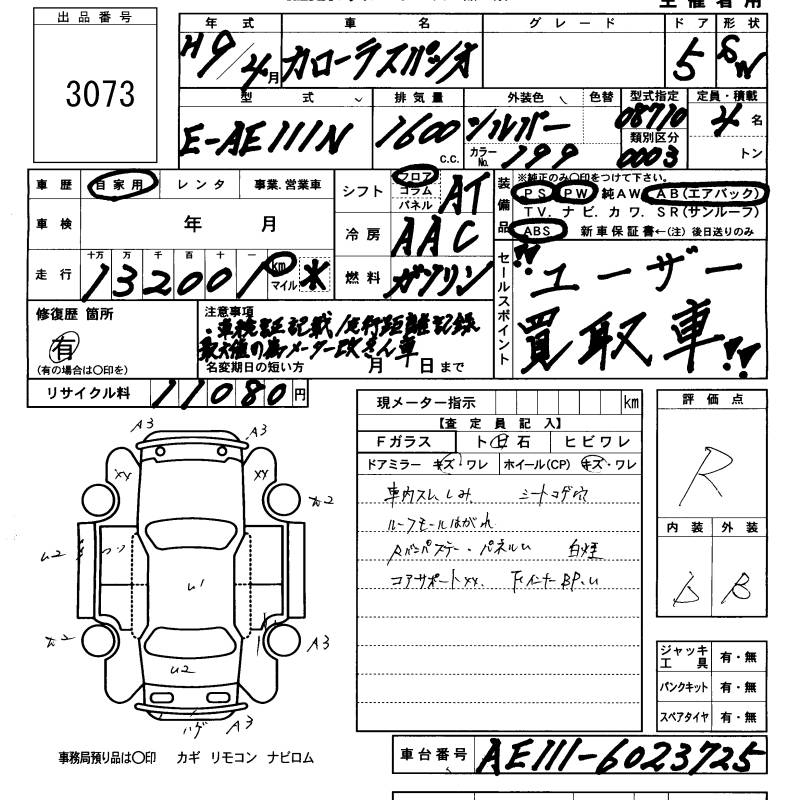 出品番号
3073
年式 車名 グレード ドア 形状
H9/4月 カローラスパシオ 5 SW
型式 排気量 外装色 色替 型式指定 定員・積載
E-AE111N 1600 c.c. シルバー 08710 4名
カラーNo. 199 類別区分 0003 トン
車歴 自家用 レンタ 事業、営業車
シフト フロア コラム パネル AT
車検 年 月
冷房 AAC
走行 十万 万 千 百 十 一
132001 km マイル *
燃料 ガソリン
装備品
※純正のみ○印をつけて下さい。
PS PW 純AW、AB(エアバック)
TV、ナビ、カワ、SR(サンルーフ)
ABS 新車保証書←(注)後日送りのみ
セールスポイント
"ユーザー
買取車!!
修復歴 箇所
有
(有の場合は○印を)
注意事項
・車検証記載/走行距離記録
最大値の為メーター改ざん車
名変期日の短い方 月 日まで
リサイクル料 11080円
現メーター指示 km
【査定員記入】
Fガラス ト日石 ヒビワレ
ドアミラー キズ・ワレ ホイール(CP) キズ・ワレ
車内スレ しみ シートコゲ穴
ルーフモールはがれ
白煙
コアサポートXX.
評価点
R
内装 外装
D B
A3 A3
XX XX
カ2
U2
U1
カ2
A3
U2
ハゲ A3
ジャッキ工具 有・無
パンクキット 有・無
スペアタイヤ 有・無
事務局預り品は○印 カギ リモコン ナビロム
車台番号 AE111-6023725